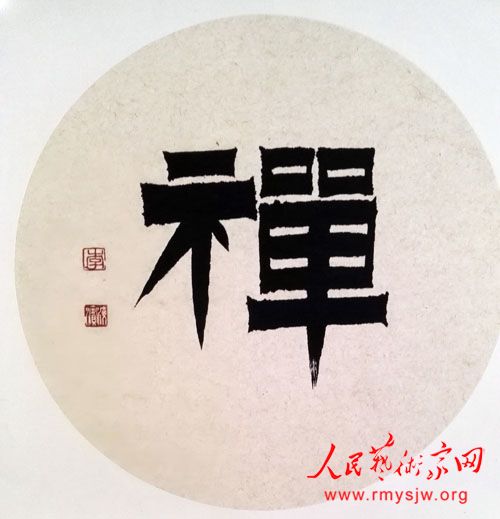 禪
人民藝術家网
www.rmysjw.org